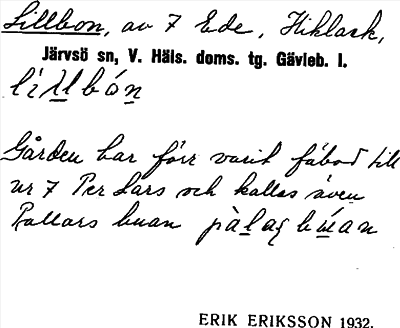 Lillbon, av 7 Ede, Hiklack,
Järvsö sn, V. Häls. doms. tg. Gävleb. l.
lillbón
Gården har förr varit fäbod till
nr 7 Per Lars och kallas även
Pallars buan pàlaṣ búan
ERIK ERIKSSON 1932.